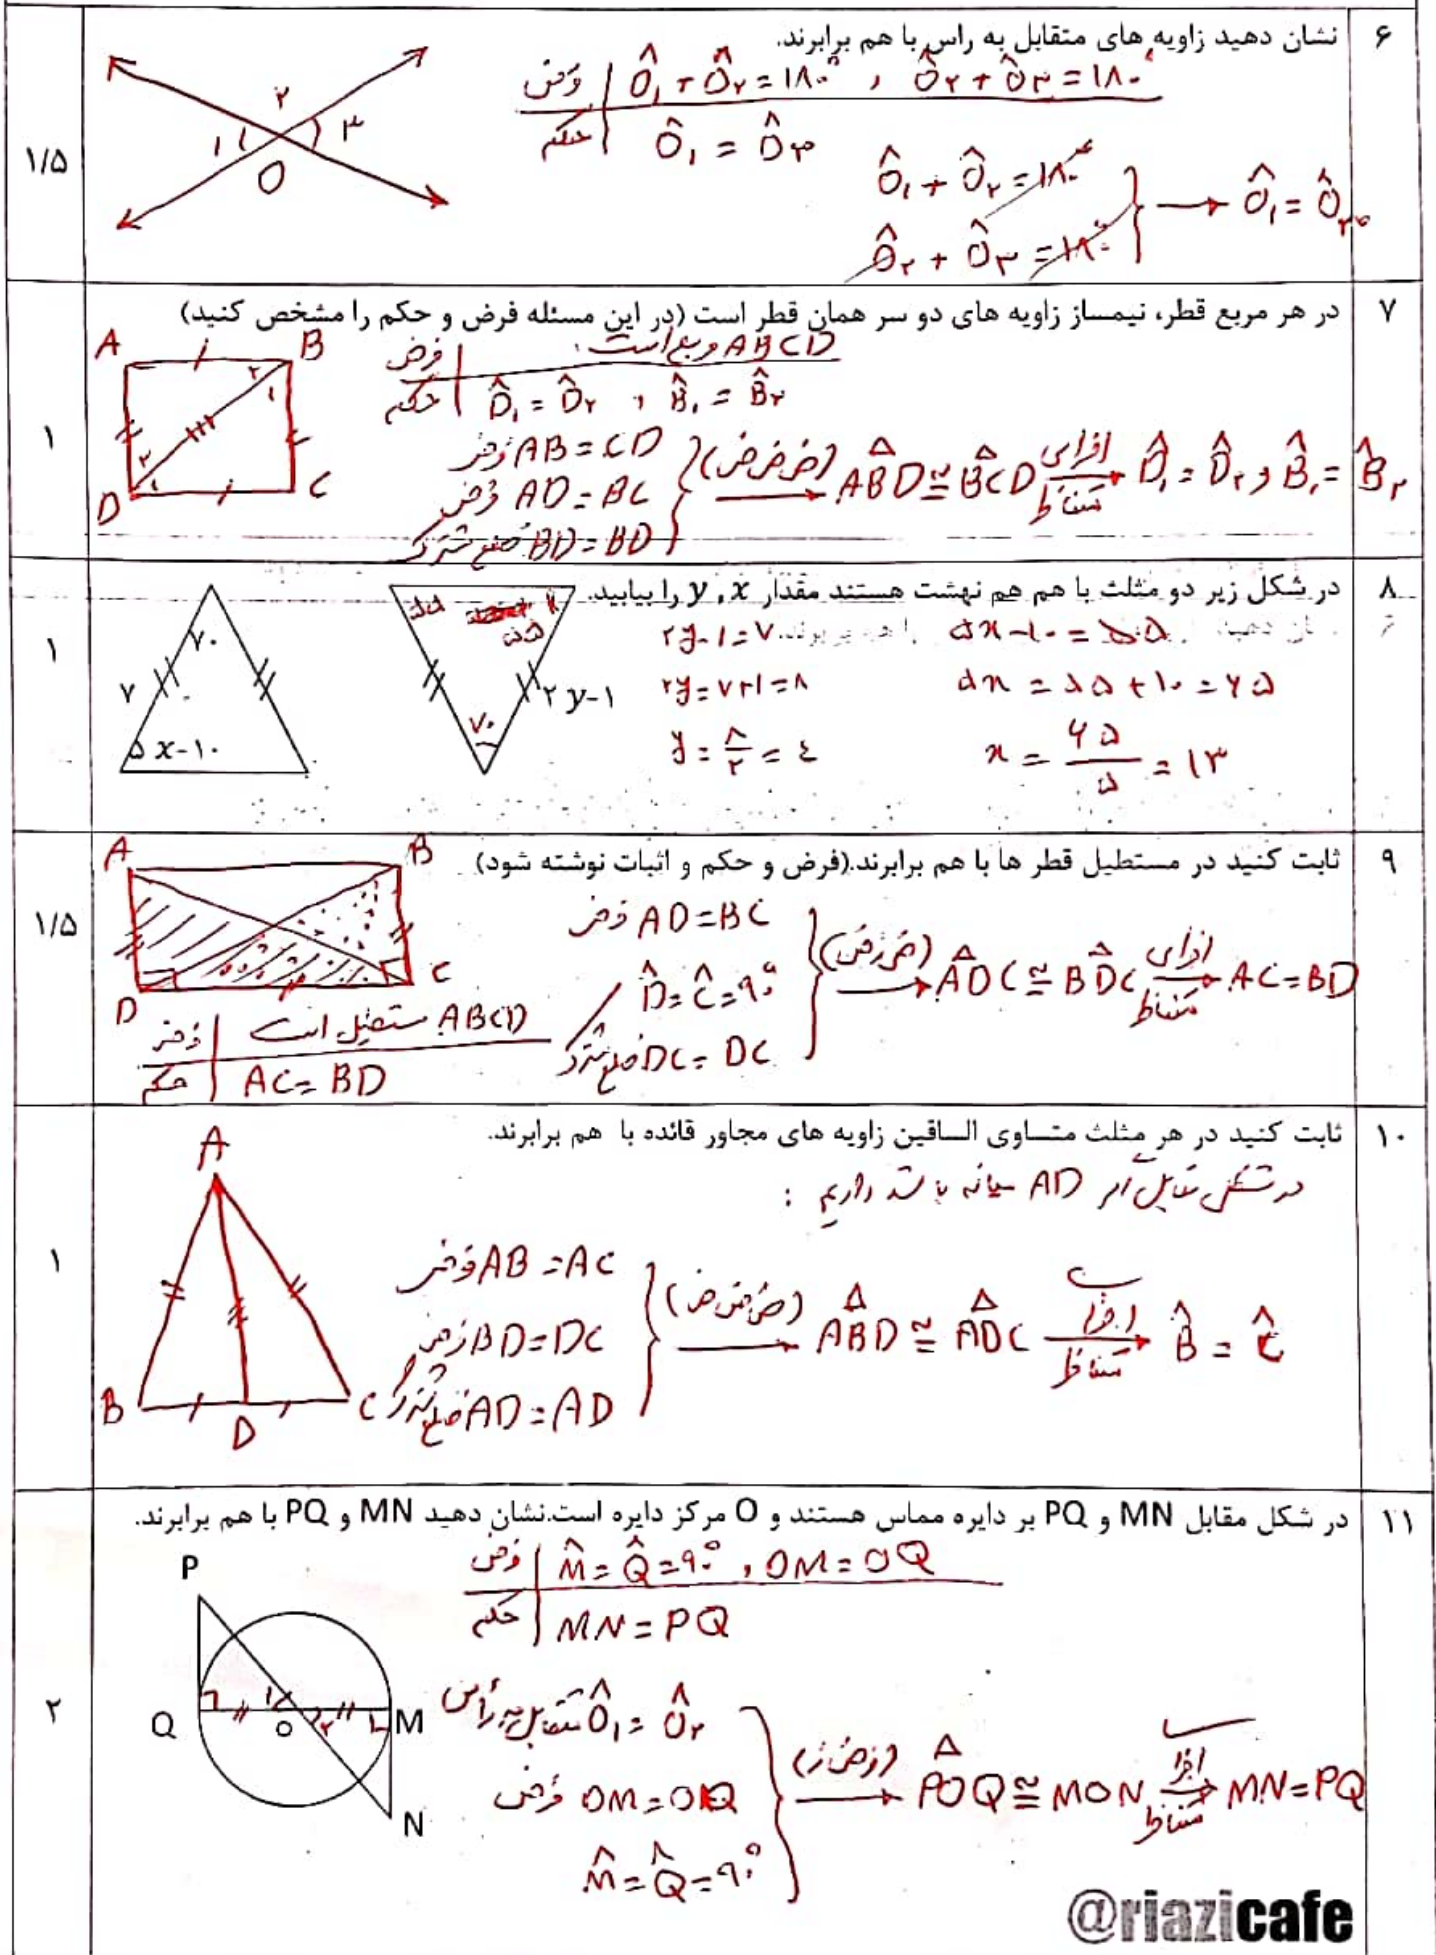 ۶
نشان دهید زاویه های متقابل به راس با هم برابرند.
۱/۵
فرض | Ô۱ + Ô۲ = ۱۸۰° , Ô۲ + Ô۳ = ۱۸۰°
حکم | Ô۱ = Ô۳
Ô۱ + Ô۲ = ۱۸۰°
Ô۲ + Ô۳ = ۱۸۰°
} → Ô۱ = Ô۳
۱ ۲ ۳ O
۷
در هر مربع قطر، نیمساز زاویه های دو سر همان قطر است (در این مسئله فرض و حکم را مشخص کنید)
۱
A B C D
۱ ۲ ۱ ۲
فرض | ABCD مربع است.
حکم | D̂۱ = D̂۲ , B̂۱ = B̂۲
فرض AB = CD
فرض AD = BC
ضلع مشترک BD = BD
} (ض ض ض) → ABD ≅ BCD اجزای متناظر → D̂۱ = D̂۲ , B̂۱ = B̂۲
۸
در شکل زیر دو مثلث با هم هم نهشت هستند مقدار x , y را بیابید.
۱
۷۰
۷
۵ x-۱۰
۵۵
۵۵
۷۰
۲ y-۱
۲y-۱ = ۷
۲y = ۷+۱ = ۸
y = ۸/۲ = ٤
۵x-۱۰ = ۵۵
۵x = ۵۵ + ۱۰ = ۶۵
x = ۶۵/۵ = ۱۳
۹
ثابت کنید در مستطیل قطر ها با هم برابرند.(فرض و حکم و اثبات نوشته شود)
۱/۵
A B C D
فرض | ABCD مستطیل است
حکم | AC = BD
فرض AD = BC
D̂ = Ĉ = ۹۰°
ضلع مشترک DC = DC
} (ض ز ض) → ADC ≅ BDC اجزای متناظر → AC = BD
۱۰
ثابت کنید در هر مثلث متساوی الساقین زاویه های مجاور قائده با هم برابرند.
۱
در شکل مقابل اگر AD میانه باشد داریم :
A B C D
فرض AB = AC
فرض BD = DC
ضلع مشترک AD = AD
} (ض ض ض) → ABD ≅ ADC اجزا متناظر → B̂ = Ĉ
۱۱
در شکل مقابل MN و PQ بر دایره مماس هستند و O مرکز دایره است.نشان دهید MN و PQ با هم برابرند.
۲
P
Q O M
N
۱ ۲
فرض | M̂ = Q̂ = ۹۰° , OM = OQ
حکم | MN = PQ
متقابل به رأس Ô۱ = Ô۲
فرض OM = OQ
M̂ = Q̂ = ۹۰°
} (ز ض ز) → POQ ≅ MON اجزا متناظر → MN = PQ
@riazicafe